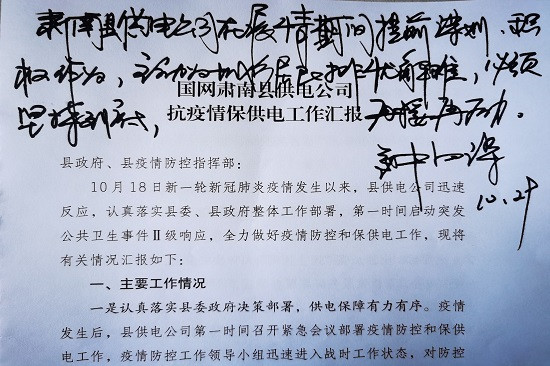 肃南县供电公司在疫情期间提前谋划、积
极作为,主动为城乡居民排忧解难,必须
坚持到底,再接再励。
10.29
国网肃南县供电公司
抗疫情保供电工作汇报
县政府、县疫情防控指挥部:
10月18日新一轮新冠肺炎疫情发生以来,县供电公司迅速
反应,认真落实县委、县政府整体工作部署,第一时间启动突发
公共卫生事件Ⅱ级响应,全力做好疫情防控和保供电工作,现将
有关情况汇报如下:
一、主要工作情况
一是认真落实县委政府决策部署,供电保障有力有序。疫情
发生后,县供电公司第一时间召开紧急会议部署疫情防控和保供
电工作,疫情防控工作领导小组迅速进入战时工作状态,对防控